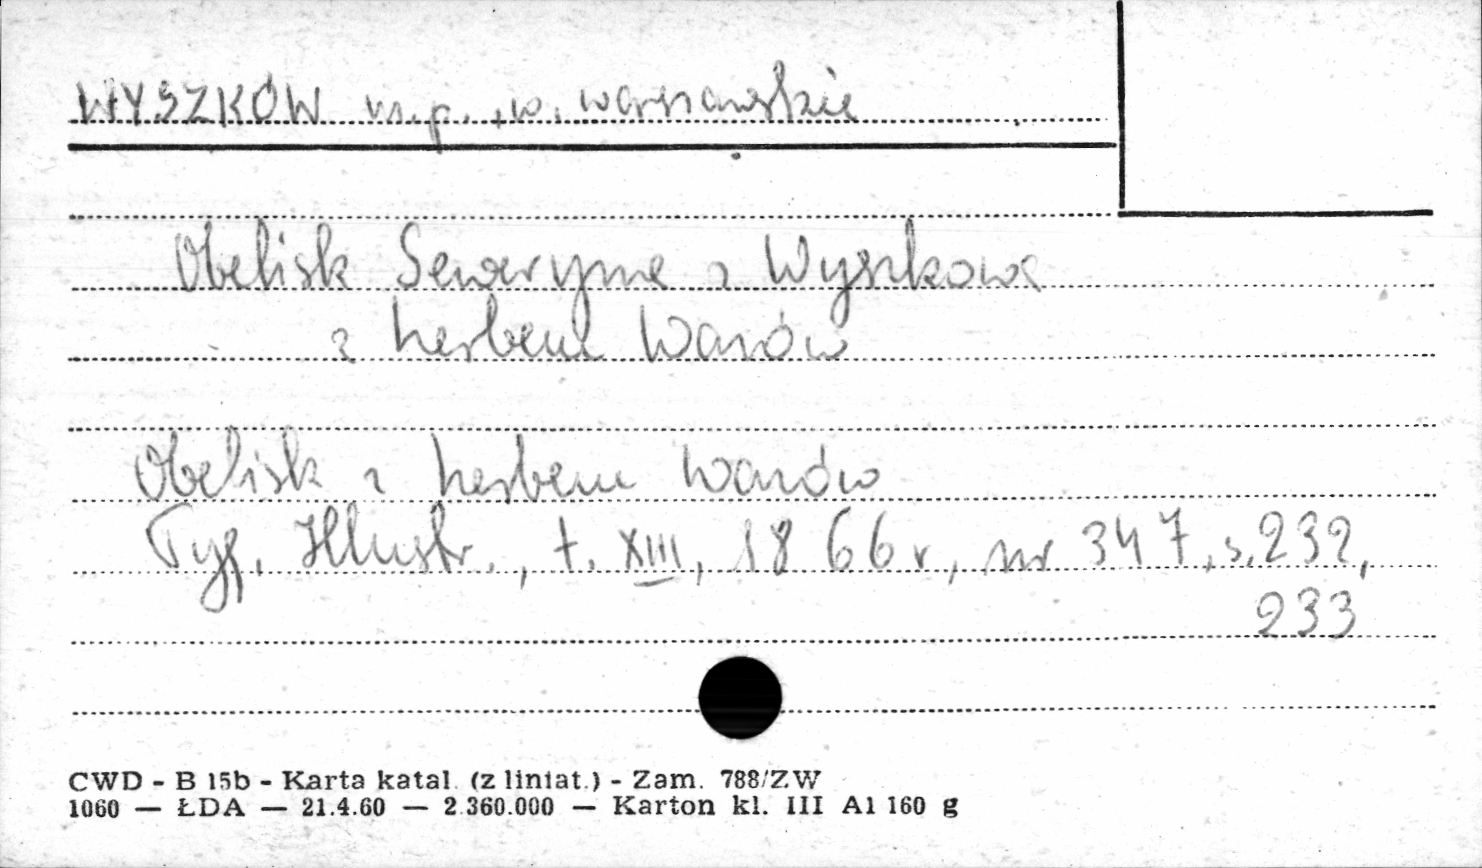 WYSZKÓW m.p., w. warszawskie
Obelisk Seweryna z Wyszkowa
z herbem Wazów
Obelisk z herbem Wazów
Tyg. Illustr., t. XIII, 1866 r, nr 347, s. 232,
233
CWD - B 15b - Karta katal. (z liniat.) - Zam. 788/ZW
1060 — ŁDA — 21.4.60 — 2.360.000 — Karton kl. III A1 160 g